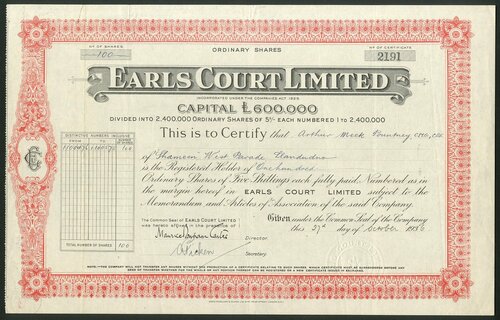 ORDINARY SHARES
No OF SHARES
100
No OF CERTIFICATE
2191
EARLS COURT LIMITED
INCORPORATED UNDER THE COMPANIES ACT 1929
CAPITAL £600,000
DIVIDED INTO 2,400,000 ORDINARY SHARES OF 5/- EACH NUMBERED 1 TO 2,400,000
This is to Certify that Arthur Meek Pountney
of West Parade Llandudno
is the Registered Holder of One hundred
Ordinary Shares of Five Shillings each fully paid Numbered as in
the margin hereof in EARLS COURT LIMITED subject to the
Memorandum and Articles of Association of the said Company.
DISTINCTIVE NUMBERS INCLUSIVE
FROM TO
100
TOTAL NUMBER OF SHARES 100
EC
The Common Seal of EARLS COURT LIMITED
was hereto affixed in the presence of
Given under the Common Seal of the Company
this day of October 1936
Director
Secretary
NOTE.—THE COMPANY WILL NOT TRANSFER ANY SHARES WITHOUT THE PRODUCTION OF A CERTIFICATE RELATING TO SUCH SHARES, WHICH CERTIFICATE MUST BE SURRENDERED BEFORE ANY
DEED OF TRANSFER WHETHER FOR THE WHOLE OR ANY PORTION THEREOF CAN BE REGISTERED OR A NEW CERTIFICATE ISSUED IN EXCHANGE.